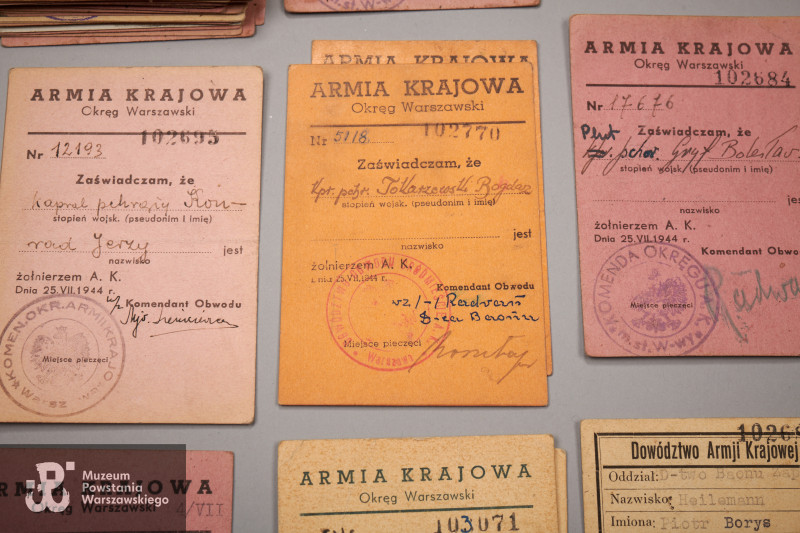 ARMIA KRAJOWA
Okręg Warszawski
102695
Nr 12193
Zaświadczam, że
kapral pchrąży Kon-
stopień wojsk. (pseudonim i imię)
rad Jerzy jest
nazwisko
żołnierzem A. K.
Dnia 25.VII.1944 r.
Komendant Obwodu
Miejsce pieczęci
KOMEN.OKR.ARMII KRAJO
ARMIA KRAJOWA
ARMIA KRAJOWA
Okręg Warszawski
102770
Nr 5118
Zaświadczam, że
Kpr. pchr. Tokarzewski Bogdan
stopień wojsk. (pseudonim i imię)
jest
nazwisko
żołnierzem A. K.
Komendant Obwodu
wz /-/ Radwan
D-ca Baonu
Miejsce pieczęci
ARMIA KRAJOWA
Okręg Warszawski
102684
Nr 17676
Plut Zaświadczam, że
pchor. Gryf Bolesław
stopień wojsk. (pseudonim i imię)
nazwisko jest
żołnierzem A. K.
Dnia 25.VII.1944 r.
Komendant Obwodu
KOMENDA OKRĘGU
Miejsce pieczęci
Radwa
ARMIA KRAJOWA
Okręg Warszawski
4/VII
Muzeum
Powstania
Warszawskiego
ARMIA KRAJOWA
Okręg Warszawski
103071
Dowództwo Armji Krajowej
Oddział: D-two Baonu Zap
Nazwisko: Heilemann
Imiona: Piotr Borys